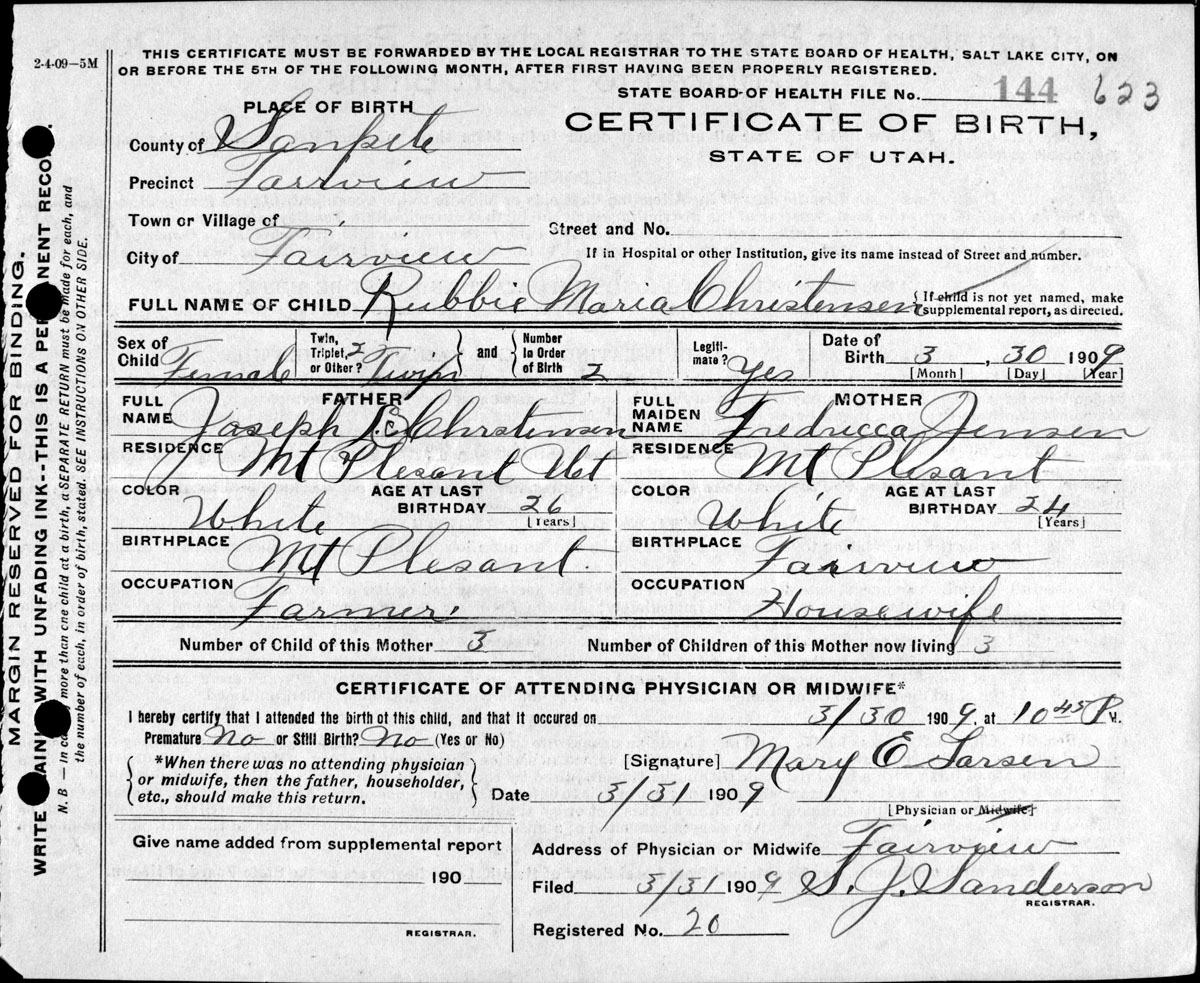 2-4-09—5M
THIS CERTIFICATE MUST BE FORWARDED BY THE LOCAL REGISTRAR TO THE STATE BOARD OF HEALTH, SALT LAKE CITY, ON
OR BEFORE THE 5TH OF THE FOLLOWING MONTH, AFTER FIRST HAVING BEEN PROPERLY REGISTERED.
STATE BOARD OF HEALTH FILE No. 144 623
PLACE OF BIRTH
CERTIFICATE OF BIRTH,
STATE OF UTAH.
County of Sanpete
Precinct Fairview
Town or Village of
Street and No.
City of Fairview
If in Hospital or other Institution, give its name instead of Street and number.
FULL NAME OF CHILD Rubbie Maria Christensen {If child is not yet named, make
supplemental report, as directed.
Sex of Child Female
Twin, Triplet, or Other? 2 Twin } and { Number In Order of Birth 2
Legiti-mate? Yes
Date of Birth 3, 30 1909
[Month] [Day] [Year]
FATHER
FULL NAME Joseph Chrstensen
RESIDENCE Mt Plesant Ut
COLOR White
AGE AT LAST BIRTHDAY 26
[Years]
BIRTHPLACE Mt Plesant
OCCUPATION Farmer
MOTHER
FULL MAIDEN NAME Fredricca Jensen
RESIDENCE Mt Plesant
COLOR White
AGE AT LAST BIRTHDAY 24
[Years]
BIRTHPLACE Fairview
OCCUPATION Housewife
Number of Child of this Mother 3 Number of Children of this Mother now living 3
CERTIFICATE OF ATTENDING PHYSICIAN OR MIDWIFE*
I hereby certify that I attended the birth of this child, and that it occured on 3/30 1909, at 10 45 P M.
Premature No or Still Birth? No (Yes or No)
{ *When there was no attending physician
or midwife, then the father, householder,
etc., should make this return. }
[Signature] Mary E Larsen
Date 3/31 1909
[Physician or Midwife]
Give name added from supplemental report
190
REGISTRAR.
Address of Physician or Midwife Fairview
Filed 3/31 1909 S. J. Sanderson
REGISTRAR.
Registered No. 20
MARGIN RESERVED FOR BINDING.
WRITE AINL WITH UNFADING INK--THIS IS A PE ANENT RECO .
N. B — In ca more than one child at a birth, a SEPARATE RETURN must be made for each, and
the number of each, in order of birth, stated. SEE INSTRUCTIONS ON OTHER SIDE.